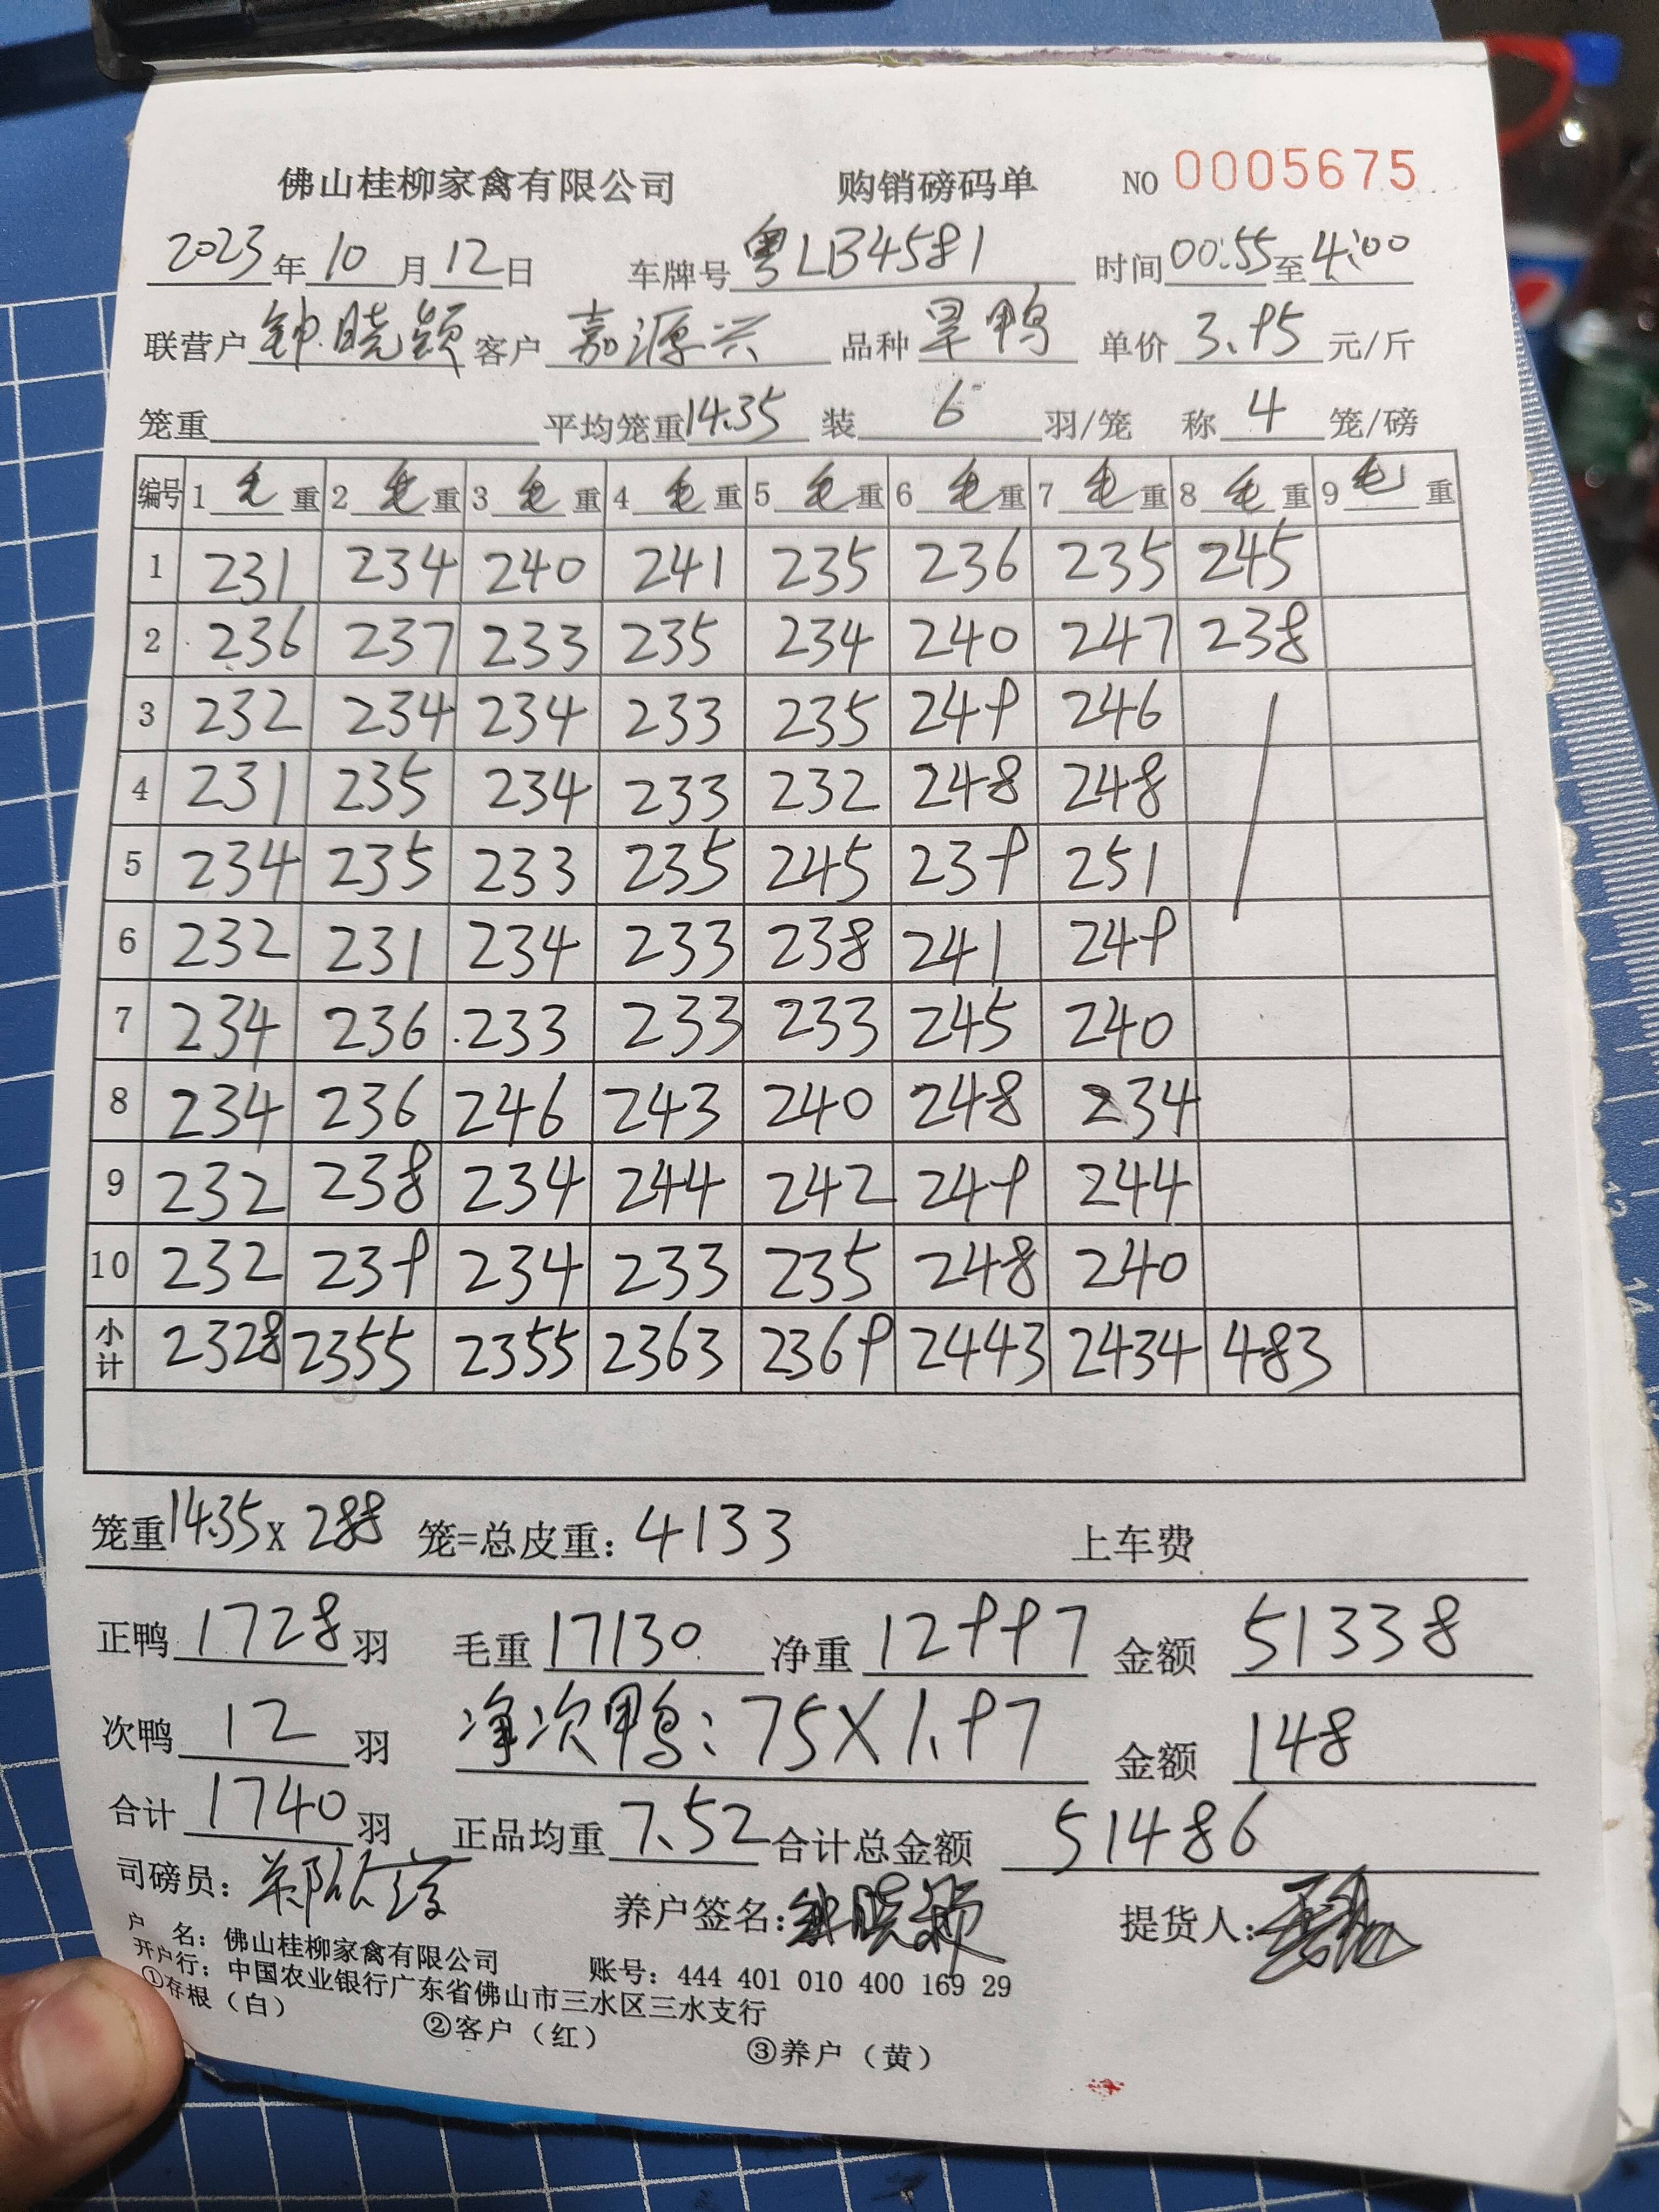 佛山桂柳家禽有限公司 购销磅码单 NO 0005675
2023年10月12日 车牌号粤LB4581 时间00:55至4:00
联营户钟晓颖 客户嘉源兴 品种旱鸭 单价3.95元/斤
笼重 平均笼重14.35 装6羽/笼 称4笼/磅
编号 1毛重 2毛重 3毛重 4毛重 5毛重 6毛重 7毛重 8毛重 9毛重
1 231 234 240 241 235 236 235 245
2 236 237 233 235 234 240 247 238
3 232 234 234 233 235 249 246
4 231 235 234 233 232 248 248
5 234 235 233 235 245 239 251
6 232 231 234 233 238 241 249
7 234 236 233 233 233 245 240
8 234 236 246 243 240 248 234
9 232 238 234 244 242 249 244
10 232 239 234 233 235 248 240
小计 2328 2355 2355 2363 2369 2443 2434 483
笼重14.35X 288 笼=总皮重：4133 上车费
正鸭1728羽 毛重17130 净重12997 金额51338
次鸭12羽 净次鸭：75X1.97 金额148
合计1740羽 正品均重7.52 合计总金额51486
司磅员：郑 养户签名：钟晓颖 提货人：
户 名：佛山桂柳家禽有限公司 账号：444 401 010 400 169 29
开户行：中国农业银行广东省佛山市三水区三水支行
①存根（白） ②客户（红） ③养户（黄）